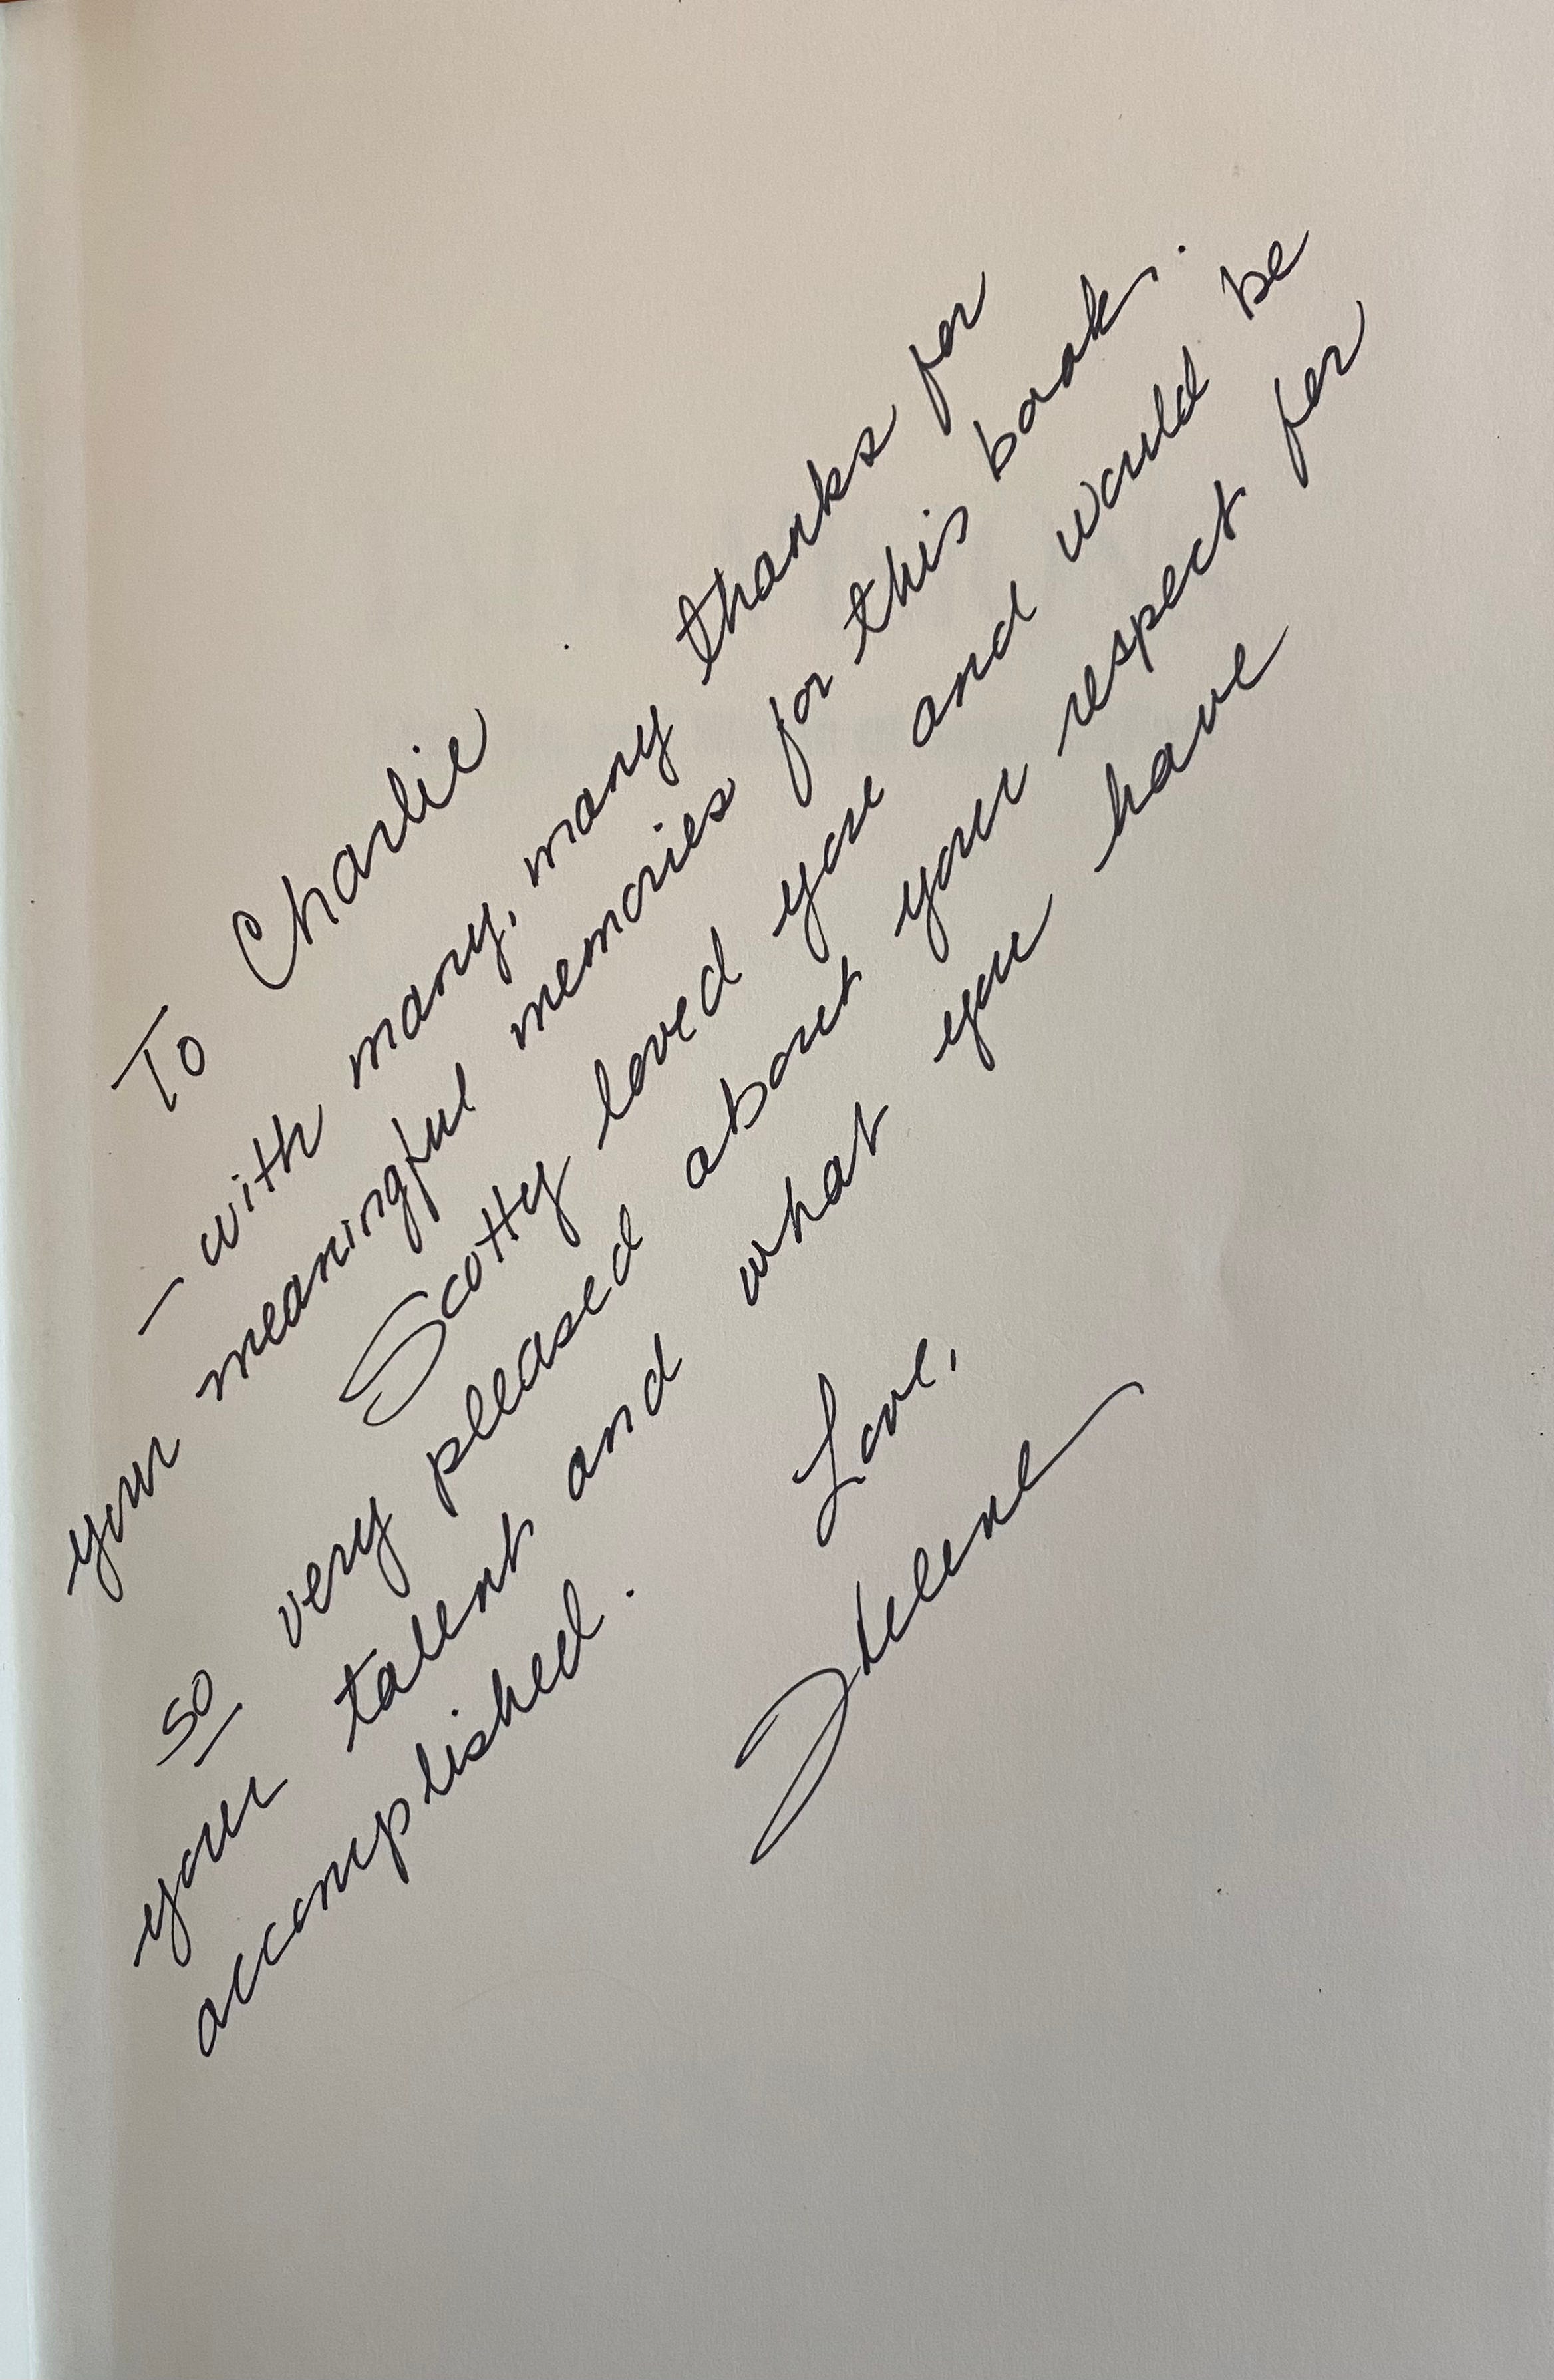 To Charlie
– with many, many thanks for
your meaningful memories for this book.
Scotty loved you and would be
so very pleased about your respect for
your talent and what you have
accomplished.
Love,
Helene